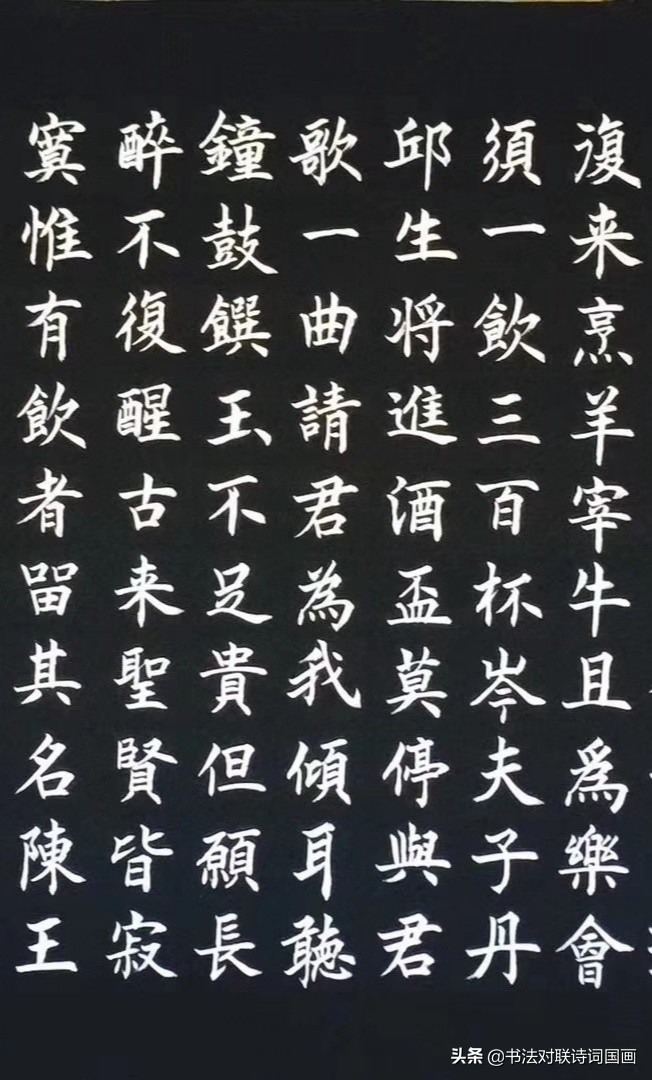 復来烹羊宰牛且爲樂會
須一飲三百杯岑夫子丹
邱生将進酒盃莫停與君
歌一曲請君為我傾耳聴
鐘鼓饌玉不足貴但願長
醉不復醒古来聖賢皆寂
寞惟有飲者留其名陳王
头条 @书法对联诗词国画